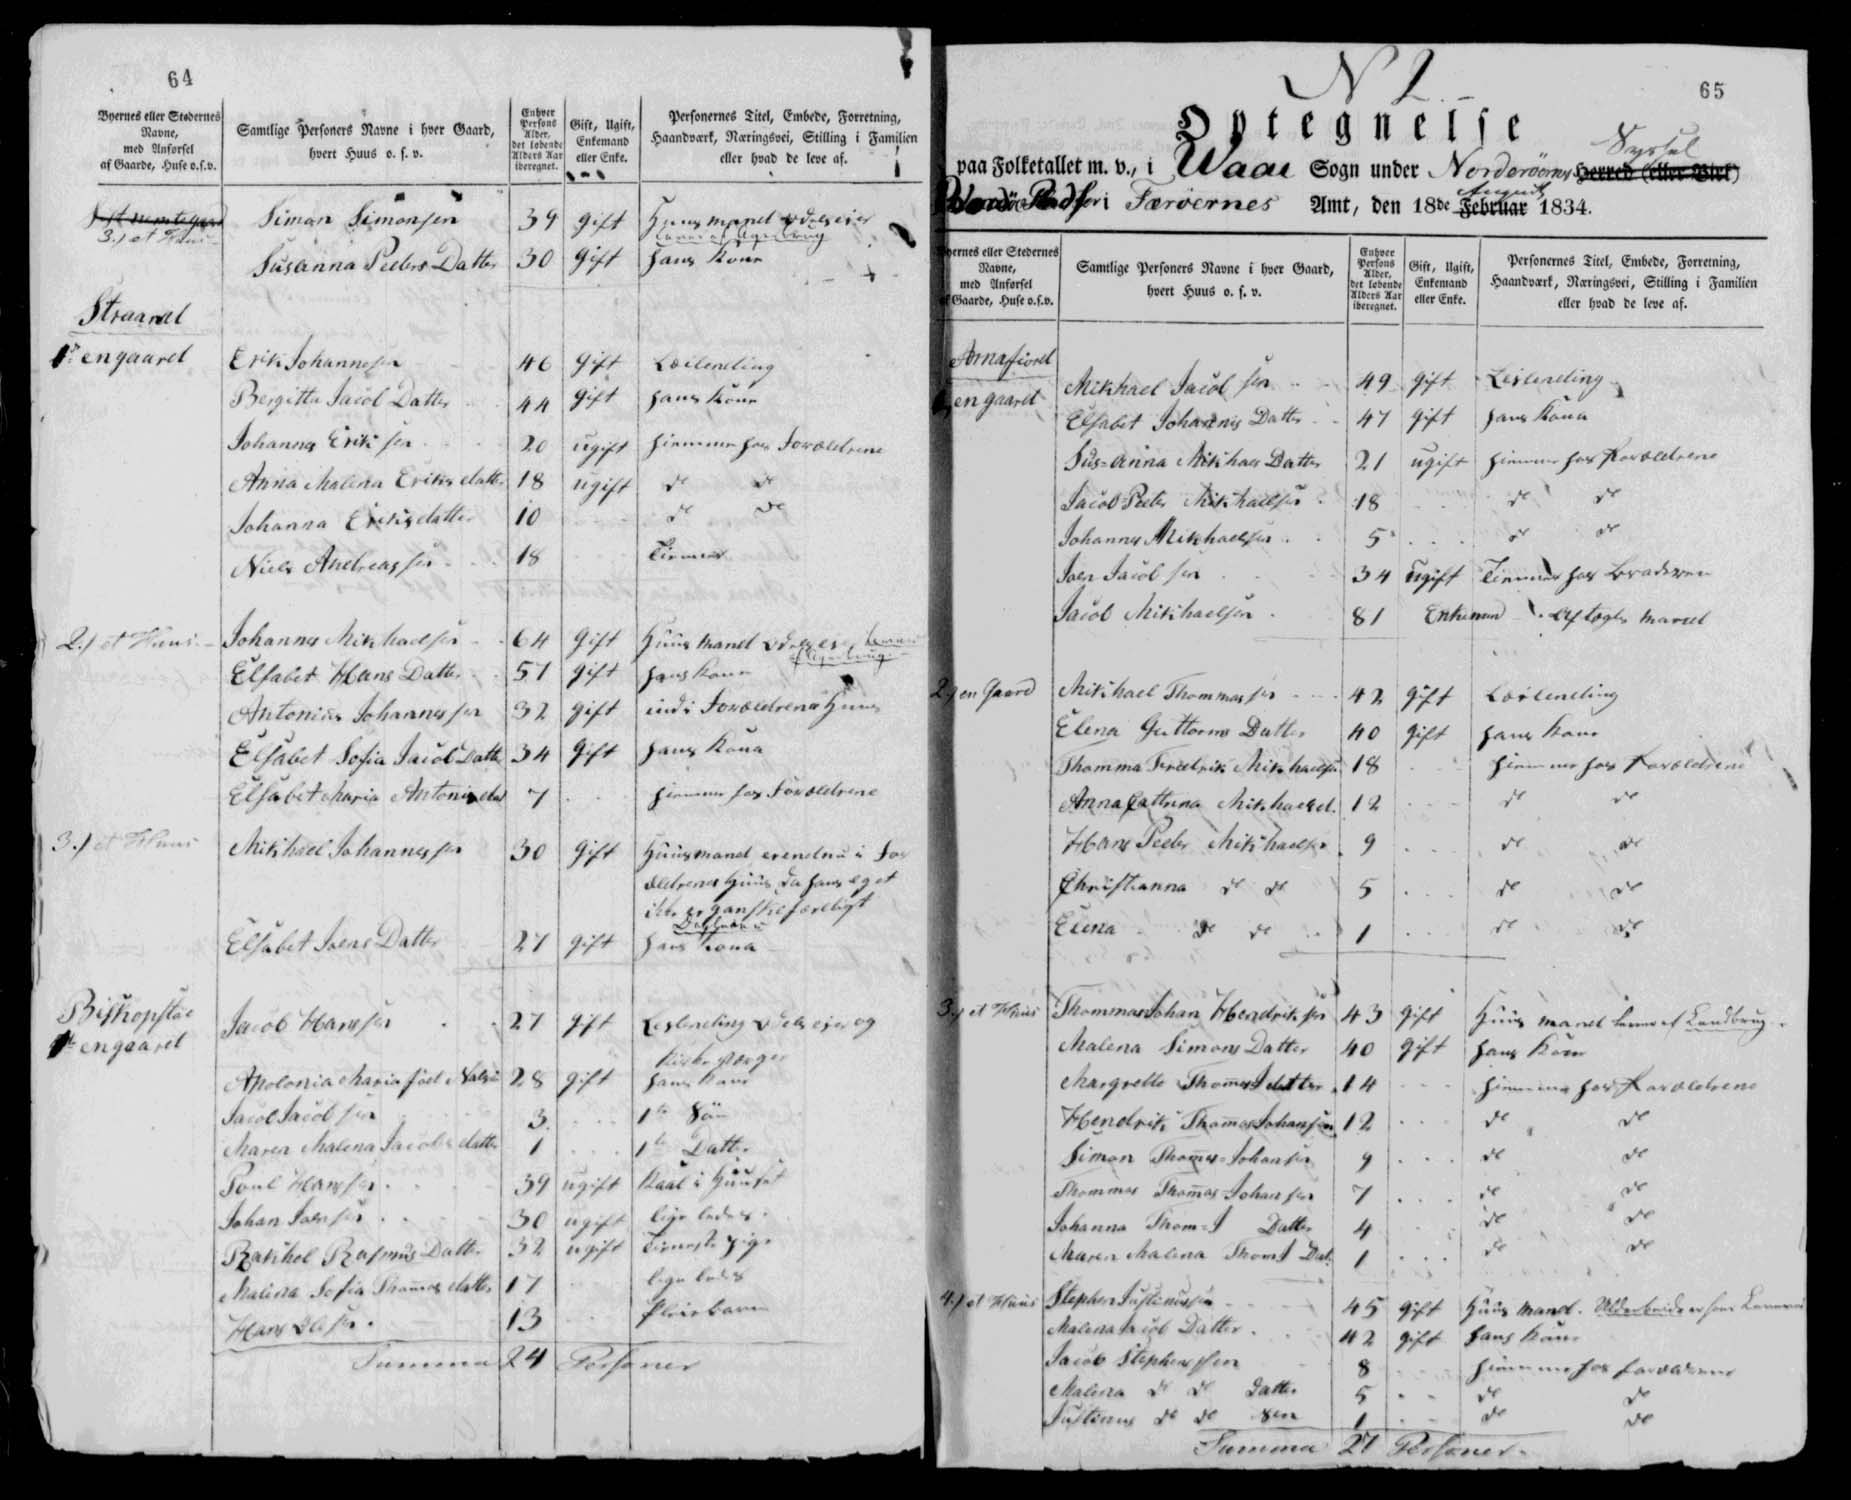 64
Byernes eller Stedernes Navne, med Anførsel af Gaarde, Huse o.s.v.
Samtlige Personers Navne i hver Gaard, hvert Huus o. s. v.
Enhver Persons Alder, det løbende Alders Aar iberegnet.
Gift, Ugift, Enkemand eller Enke.
Personernes Titel, Embede, Forretning, Haandværk, Næringsvei, Stilling i Familien eller hvad de leve af.
3.) et Huus Simon Simonsen 39 gift Huusmand odelseier
Susanna Peders Datter 30 gift hans Kone
Straand
1 en gaard Erik Johannesen 46 gift Læilending
Bergitta Jacob Datter 44 gift hans Kone
Johannes Eriksen 20 ugift hiemme hos Forældrene
Anna Malena Eriks datter 18 ugift do do
Johanna Eriks datter 10 do do
Niels Andreassen 18
2.) et Huus Johannes Mikhaelsen 64 gift Huusmand
Elsabet Hans Datter 57 gift hans Kone
Antonius Johannessen 32 gift inde i Forældrenes Huus
Elsabet Sofia Jacob Datter 34 gift hans Kona
Elsabet Maria Antonis dat 7 hiemme hos Forældrene
3.) et Huus Mikhael Johannessen 30 gift Huusmand erendnu i For
ældrenes Huus da hans eget
ikke er ganske færdigt
Elsabet Joens Datter 27 gift hans Kona
Biskopstøe
1 en gaard Jacob Hanssen 27 gift Leilending odelseier og
Kirke værger
Apolonia Maria fød 28 gift hans Kone
Jacob Jacobsen 3. 1te Søn
Maren Malena Jacobs datter 1 1te Datter
Poul Hanssen 39 ugift Kaal i Huuset
Johan Joensen 30 ugift lige ledes
Rakhel Rasmus Datter 32 ugift Tieneste pige
Malena Sofia Thomas datter 17 lige ledes
Hans Olesen 13 Pleiebarn
Summa 24 Personer
N 2
65
Optegnelse
paa Folketallet m. v., i Waae Sogn under Norderöernes Herred (eller Birk) Syssel
i Færøernes Amt, den 18de Februar August 1834.
Byernes eller Stedernes Navne, med Anførsel af Gaarde, Huse o.s.v.
Samtlige Personers Navne i hver Gaard, hvert Huus o. s. v.
Enhver Persons Alder, det løbende Alders Aar iberegnet.
Gift, Ugift, Enkemand eller Enke.
Personernes Titel, Embede, Forretning, Haandværk, Næringsvei, Stilling i Familien eller hvad de leve af.
Arnafiord
en gaard Mikhael Jacobsen 49 gift Leilending
Elsabet Johannis Datter 47 gift hans Kona
Sus=anna Mikhaes Datter 21 ugift hiemme hos Forældrene
Jacob Peder Mikhaelsen 18 do do
Johannes Mikhaelsen 5 do do
Joen Jacobsen 34 ugift Tienner hos Broderen
Jacob Mikhaelsen 81 Enkemand Aftægts mand
2.) en Gaard Mikhael Thommassen 42 gift Leilending
Elena Guttorms Datter 40 gift hans Kone
Thomma Fredrik Mikhaelsen 18 hiemme hos Forældrene
Anna Cattrina Mikhaesd. 12 do do
Hans Peder Mikhaelsen 9 do do
Christianna do do 5 do do
Elena do do 1 do do
3.) et Huus Thommas Johan Hendriksen 43 gift Huus mand lever af Landbrug
Malena Simons Datter 40 gift hans Kone
Margrette Thomas J datter 14 hiemme hos Forældrene
Hendrik Thomas Johansen 12 do do
Simon Thomas=Johansen 9 do do
Thommas Thomas=Johansen 7 do do
Johanna Thom=J Datter 4 do do
Maren Malena Thom J Dat. 1 do do
4.) et Huus Stephen Justinussen 45 gift Huus mand.
Malena Jacob Datter 42 gift hans Kone
Jacob Stephenssen 8 hiemme hos forældrene
Malena do do Datter 5 do do
Justinus do do sen 1 do do
Summa 27 Personer